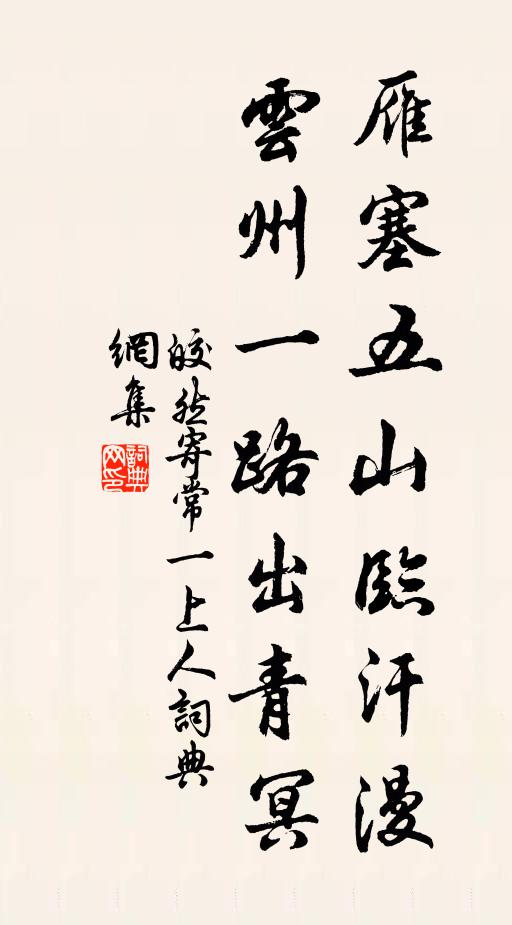 雁塞五山臨汗漫
雲州一路出青冥
皎然寄常一上人詞典
網集
詞典
网印